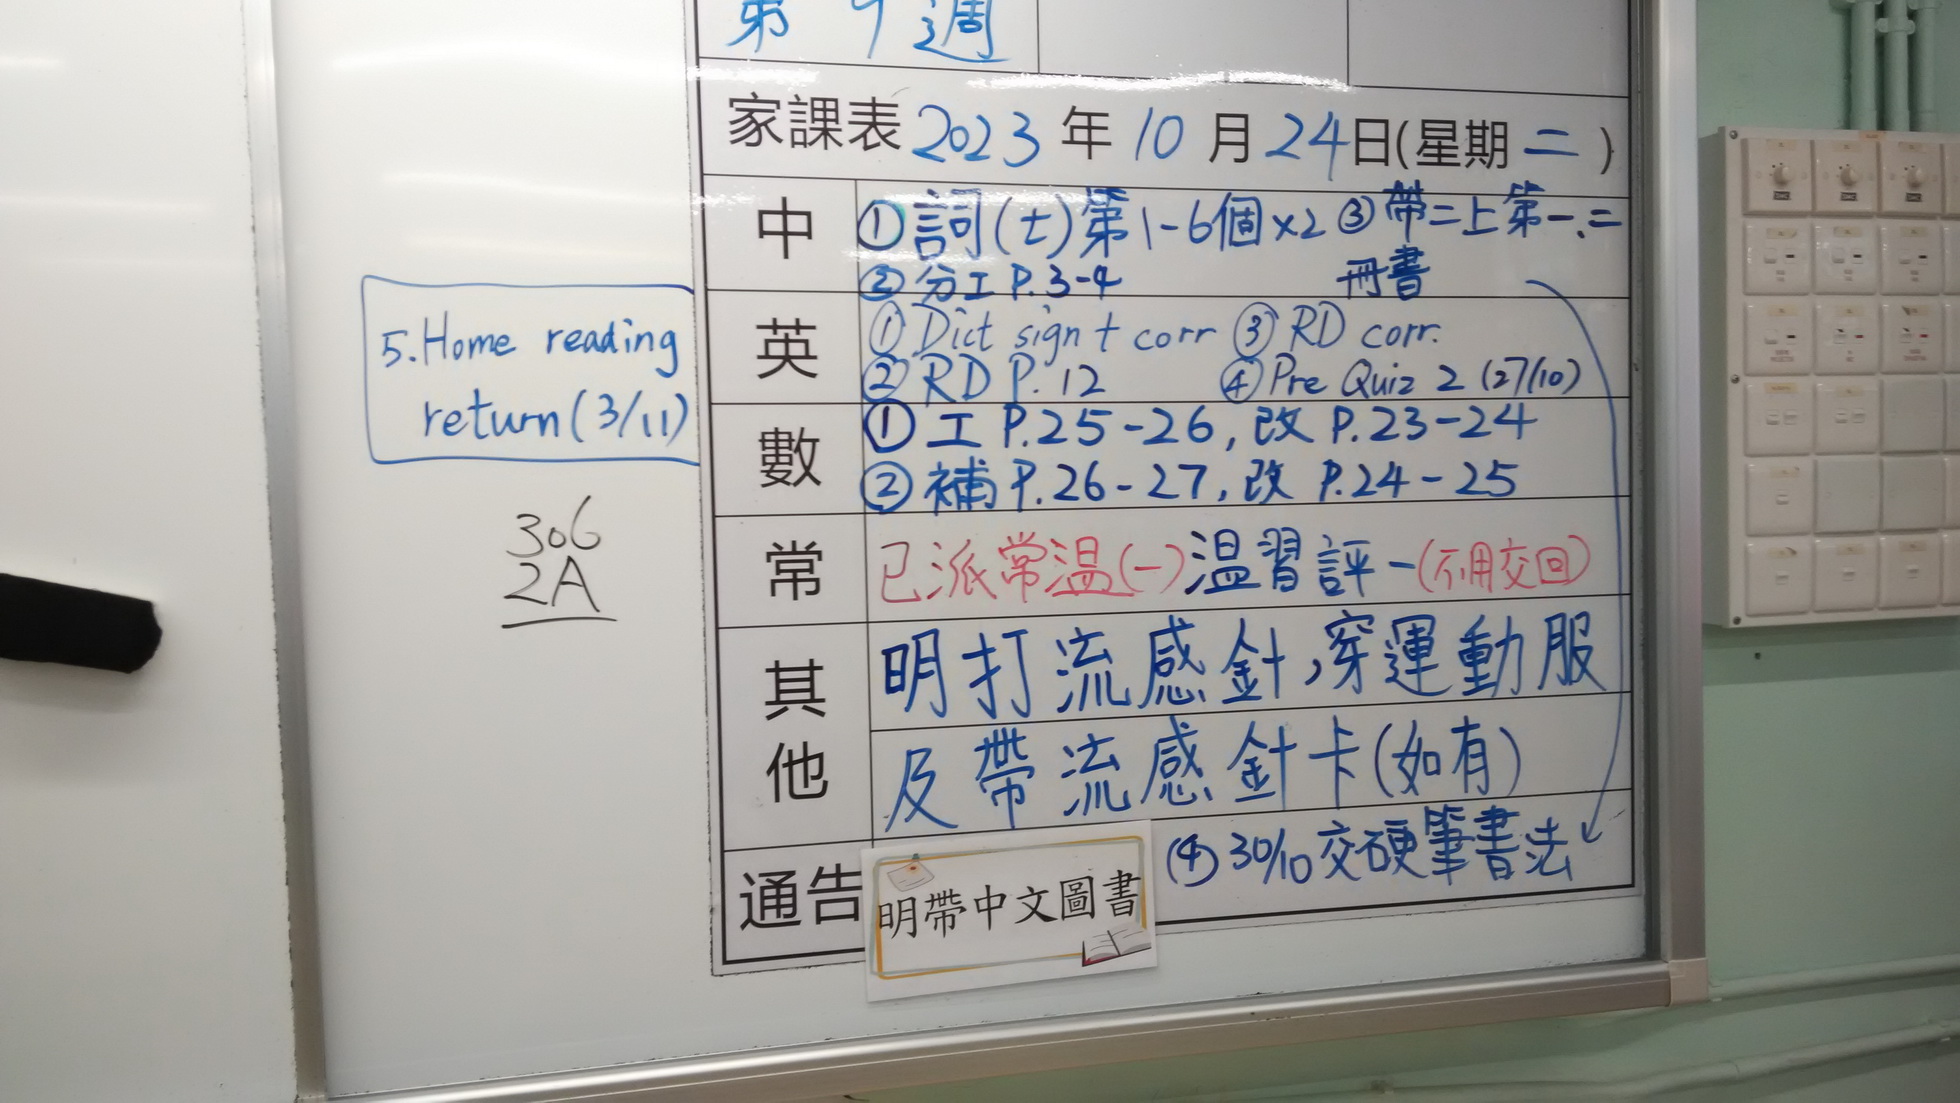 第9週
家課表 2023 年 10 月 24 日(星期 二 )
中
①詞(七)第1-6個×2 ③帶二上第一、二
②分工 P.3-4 冊書
英
①Dict sign + corr ③RD corr.
②RD P.12 ④Pre Quiz 2 (27/10)
5.Home reading
return(3/11)
數
①工 P.25-26, 改 P.23-24
②補 P.26-27, 改 P.24-25
306
2A
常
已派常温(一)温習評一(不用交回)
其他
明打流感針,穿運動服
及帶流感針卡(如有)
通告
明帶中文圖書
(4) 30/10交硬筆書法